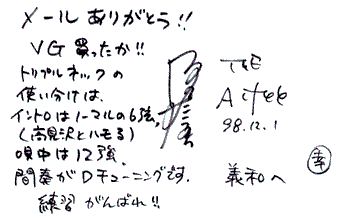 メールありがとう!!
VG買ったか!!
トリプルネックの
使い分けは、
イントロはノーマルの6弦、
(高見沢とハモる)
唄中は12弦、
間奏がDチューニングです.
練習がんばれ!!
THE
ALFEE
98.12.1
幸
義和へ